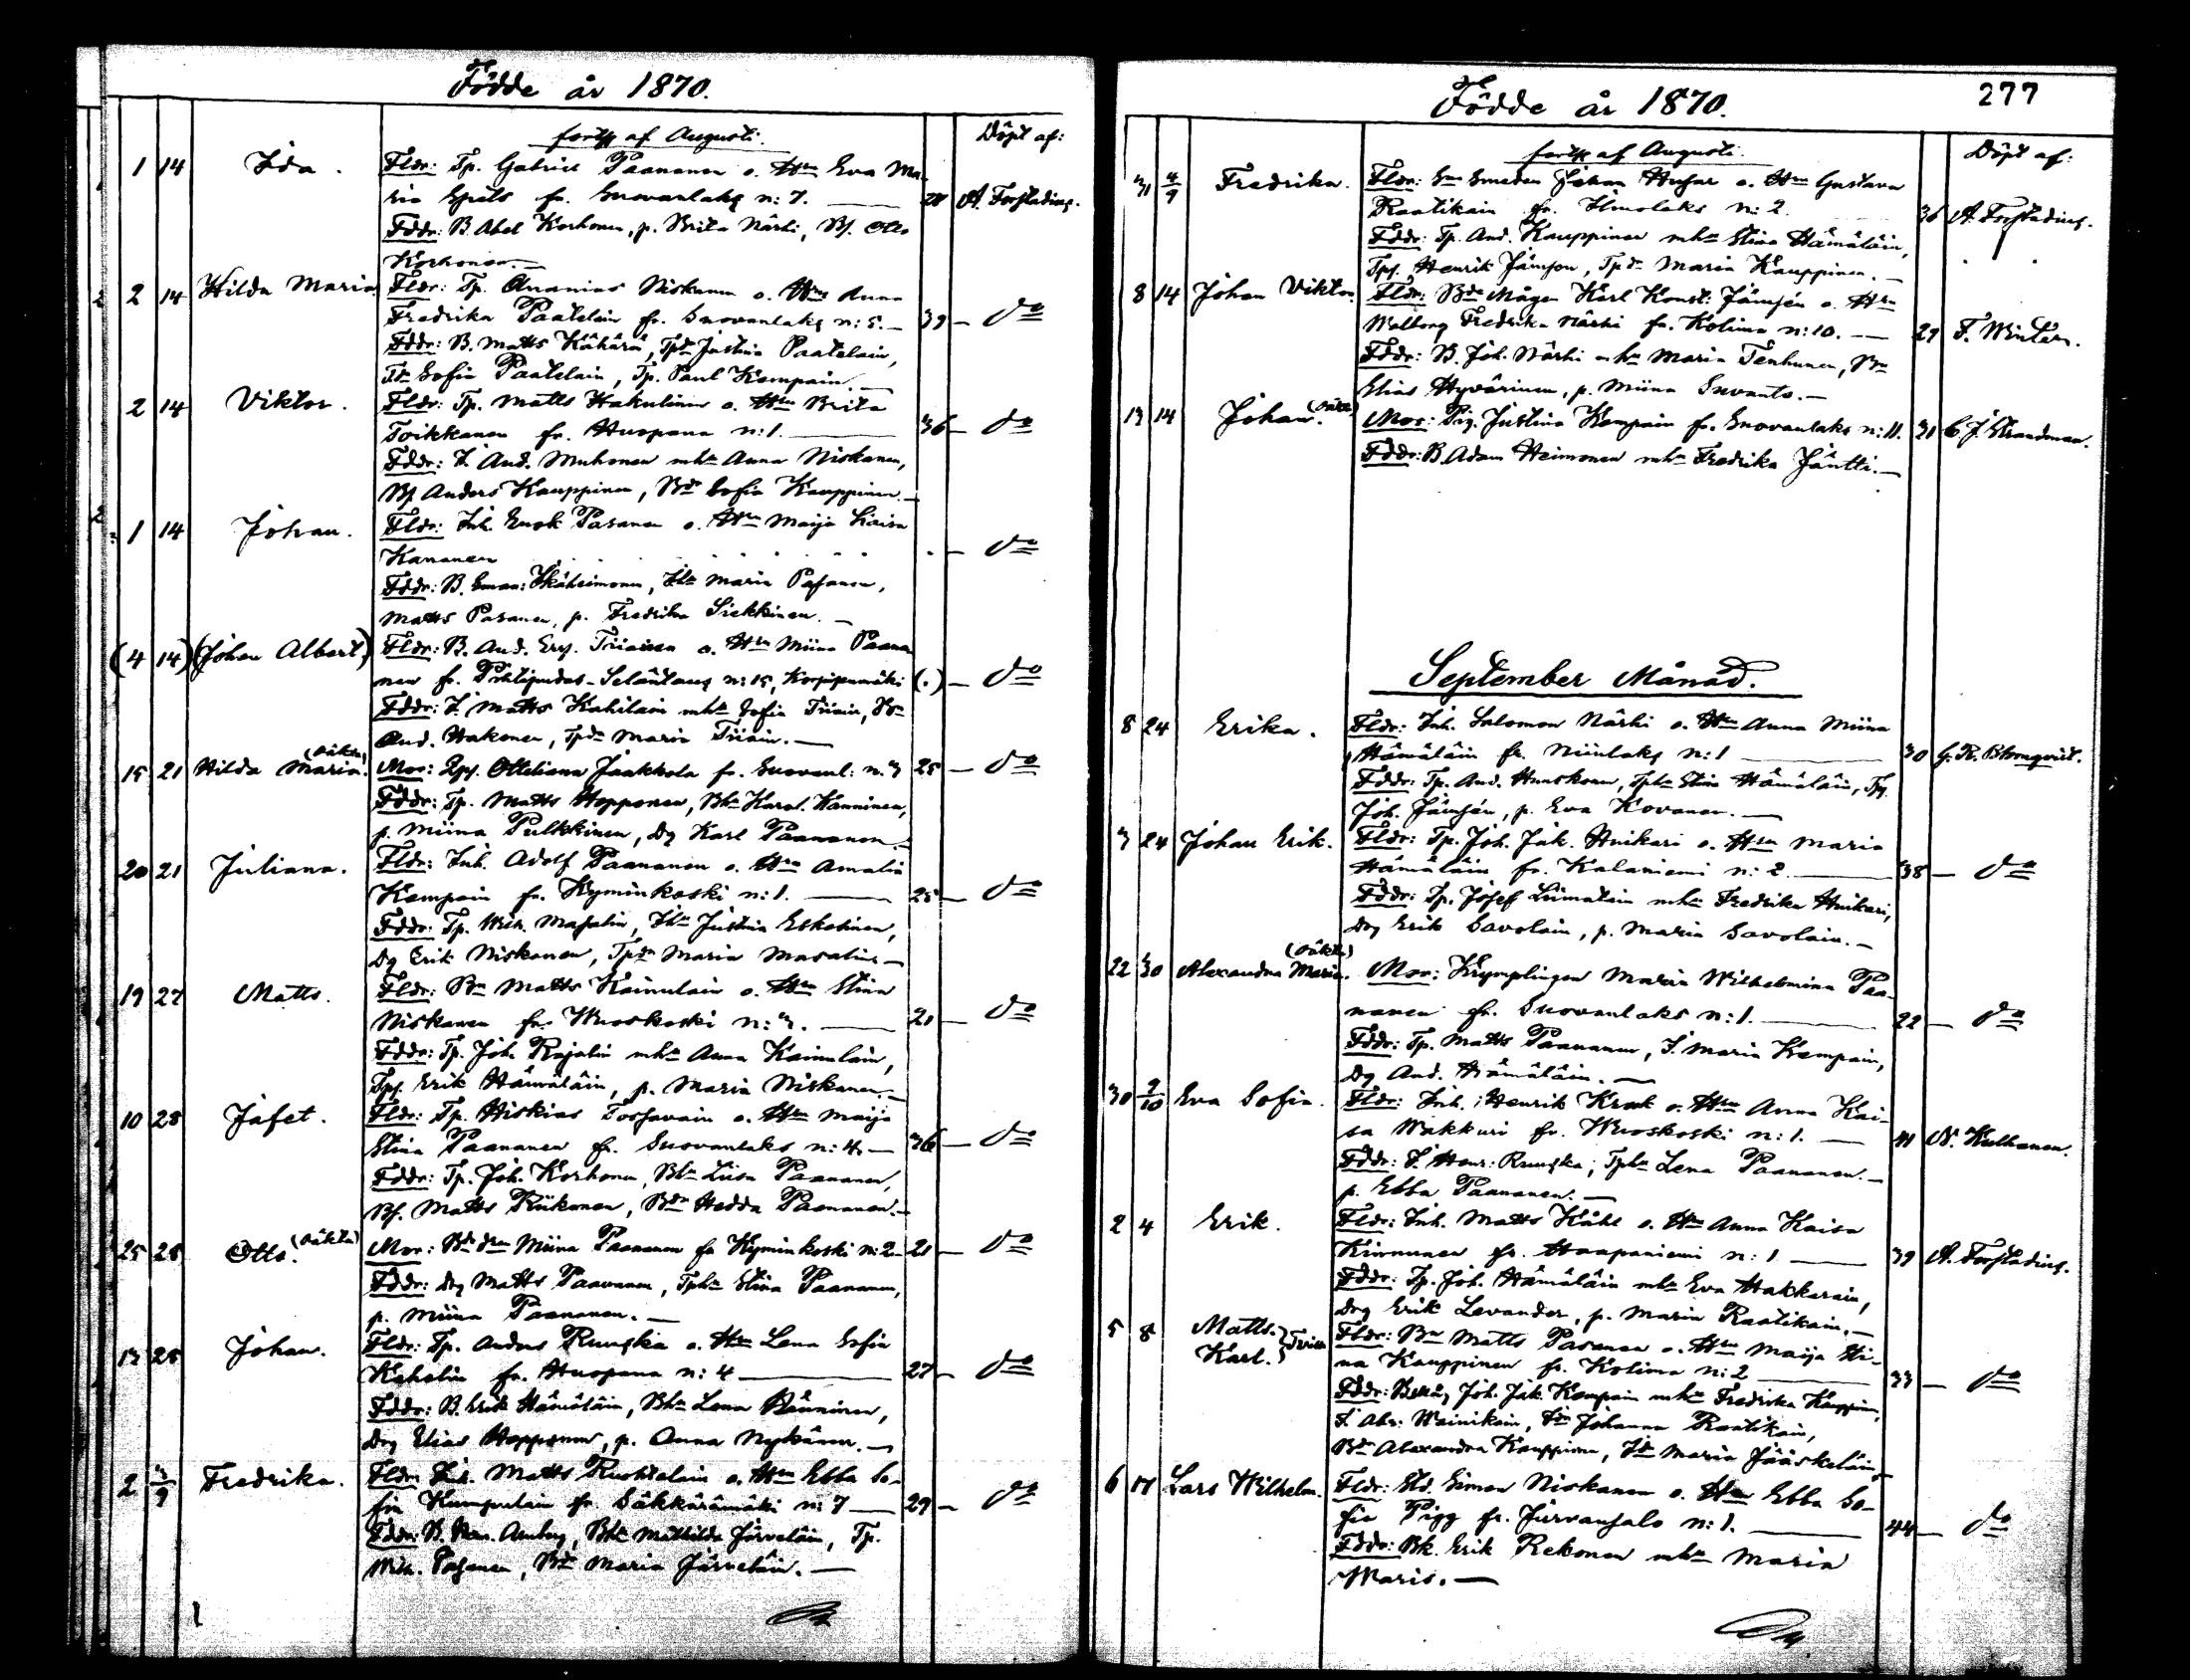 Födde år 1870.
forts af Augusti.
Döpt af:
1 14 Ida. Fldr: Tp. Gabriel Paananen o. Hru Eva Ma-
ria Spets fr. Suovanlaks n: 7. 28 A. Forstadius.
Fddr: B. Abel Korhonen, p. Brita Närhi, Bs. Otto
Korhonen.—
2 14 Hilda Maria Fldr: Tp. Ananias Niskanen o. Hru Anna
Fredrika Paatelain fr. Suovanlaks n: 5.— 39 — do
Fddr: B. Matts Kähärä, Tpdr Justina Paatelain,
Sofia Paatelain, Tp. Paul Kempain.—
2 14 Viktor. Fldr: Tp. Matts Hakulinen o. Hru Brita
Toikkanen fr. Huopana n: 1. 36 — do
Fddr: I. And. Muhonen mhu Anna Niskanen,
Bs Anders Kauppinen, Bdr Sofia Kauppinen.—
1 14 Johan. Fldr: Inh. Enok Pasanen o. Hru Maija Kaisa
Kananen . — do
Fddr: B. Eman: Ikäheimonen, Ihu Maria Pasanen,
Matts Pasanen, p. Fredrika Siekkinen.—
(4 14) (Johan Albert.) Fldr: B. And. Ers. Tiiainen o. Hru Miina Paana-
nen fr. Pihtipudas-Seläntaus n: 15, Korpipumäki (.) — do
Fddr: I. Matts Kahilain mhu Sofia Tiiain,
And. Hakonen, Tpdr Maria Tiiain.—
15 21 Hilda Maria. (oäkta) Mor: Ottiliana Jaakkola fr. Suovanl: n: 3 25 — do
Fddr: Tp. Matts Hopponen, Bhu Karol. Kanninen,
p. Miina Pulkkinen, Dg Karl Paananen.—
20 21 Juliana. Fldr: Inh. Adolf Paananen o. Hru Amalia
Kempain fr. Kyminkoski n: 1. 25 — do
Fddr: Tp. Wilh. Masalin, Ihu Justina Eskelinen,
Dg Erik Niskanen, Tpdr Maria Masalin.—
19 27 Matts. Fldr: Bn Matts Kainulain o. Hru Stina
Niskanen fr. Wuoskoski n: 3. 21 — do
Fddr: Tp. Joh. Rajalin mhu Anna Kainulain,
Tps. Erik Hämäläin, p. Maria Niskanen.—
10 28 Jafet. Fldr: Tp. Hiskias Torsavain o. Hru Maija
Stina Paananen fr. Suovanlaks n: 4.— 36 — do
Fddr: Tp. Joh. Korhonen, Bhu Liisa Paananen,
Bs. Matts Riikonen, Bdr Hedda Paananen.—
25 28 Otto. (oäkta) Mor: Bdr Miina Paananen fr Kyminkoski n: 2 21 — do
Fddr: Dg Matts Paavanen, Tphu Stina Paananen,
p. Miina Paananen.—
13 28 Johan. Fldr: Tp. Anders Ruuska o. Hru Lena Sofia
Kekolin fr. Huopana n: 4 27 — do
Fddr: B. Erik Hämäläin, Bhu Lena Rönninen,
Dg Elias Hopponen, p. Anna Nykänen.—
2 3/9 Fredrika. Fldr: Inh. Matts Ruotsalain o. Hru Ebba So-
fia Kumpulain fr. Säkkärämäki n: 7 — 29 — do
Fddr: B. Amberg, Bhu Mathilda Järveläin, Tp.
Wilh. Pasanen, Bdr Maria Järveläin.—
Födde år 1870.
277
forts af Augusti.
Döpt af:
31 4/9 Fredrika. Fldr: Smeden Johan Husar o. Hru Gustava
Raatikain fr. Ilmolaks n: 2. 36 A. Forstadius.
Fddr: Tp. And. Kauppinen mhu Stina Hämäläin,
Tps. Henrik Jämsen, Tpdr Maria Kauppinen.—
8 14 Johan Viktor. Fldr: Bde Mågen Karl Konst: Jämsén o. Hru
Walborg Fredrika Närhi fr. Kolima n: 10.— 29 F. Winter.
Fddr: B. Joh. Närhi mhu Maria Tenhunen, Bn
Elias Hyvärinen, p. Miina Suvanto.—
13 14 Johan. (oäkta) Mor: Pig. Justina Kempain fr. Suovanlaks n: 11. 31 C. J. Strandman.
Fddr: B. Adam Heimonen mhu Fredrika Jäntti.—
September Månad.
8 24 Erika. Fldr: Inh. Salomon Närhi o. Hru Anna Miina
Hämäläin fr. Niinilaks n: 1 30 G. R. Blomqvist.
Fddr: Tp. And. Hunskonen, Tphu Stina Hämäläin, Tps.
Joh. Jämsén, p. Eva Kovanen.—
3 24 Johan Erik. Fldr: Tp. Joh. Jak. Huikari o. Hru Maria
Hämäläin fr. Kalaniemi n: 2. 38 — do
Fddr: Tp. Josef Liimatain mhu Fredrika Huikari,
Dg Erik Savolain, p. Maria Savolain.—
22 30 Alexandra Maria. (oäkta) Mor: Krymplingen Maria Wilhelmina Paa-
nanen fr. Suovanlaks n: 1. 22 — do
Fddr: Tp. Matts Paananen, I. Maria Kempain,
Dg And. Hämäläin.—
30 9/10 Eva Sofia. Fldr: Inh. Henrik Krook o. Hru Anna Kai-
sa Wakkuri fr. Wuoskoski n: 1. — 41 N. Kuthanen.
Fddr: I. Henr: Ruuska, Tphu Lena Paananen.—
p. Ebba Paananen.—
2 4 Erik. Fldr: Inh. Matts Kähl o. Hru Anna Kaisa
Kinnunen fr. Haapaniemi n: 1 — 39 A. Forstadius.
Fddr: Tp. Joh. Hämäläin mhu Eva Hakkarain,
Dg Erik Levander, p. Maria Raatikain.—
5 8 Matts. Karl. } Tvill. Fldr: Bn Matts Pasanen o. Hru Maija Hi-
na Kauppinen fr. Kolima n: 2 33 — do
Fddr: Joh. Jak. Kempain mhu Fredrika Kauppinen,
I. Abr: Wainikain, Johanna Raatikain,
Bdr Alexandra Kauppinen, Idr Maria Jääskeläin.—
6 17 Lars Wilhelm. Fldr: Simon Niskanen o. Hru Ebba So-
fia Pigg fr. Jurvansalo n: 1. 44 — do
Fddr: Bk. Erik Rekonen mhu Maria
Maris.—